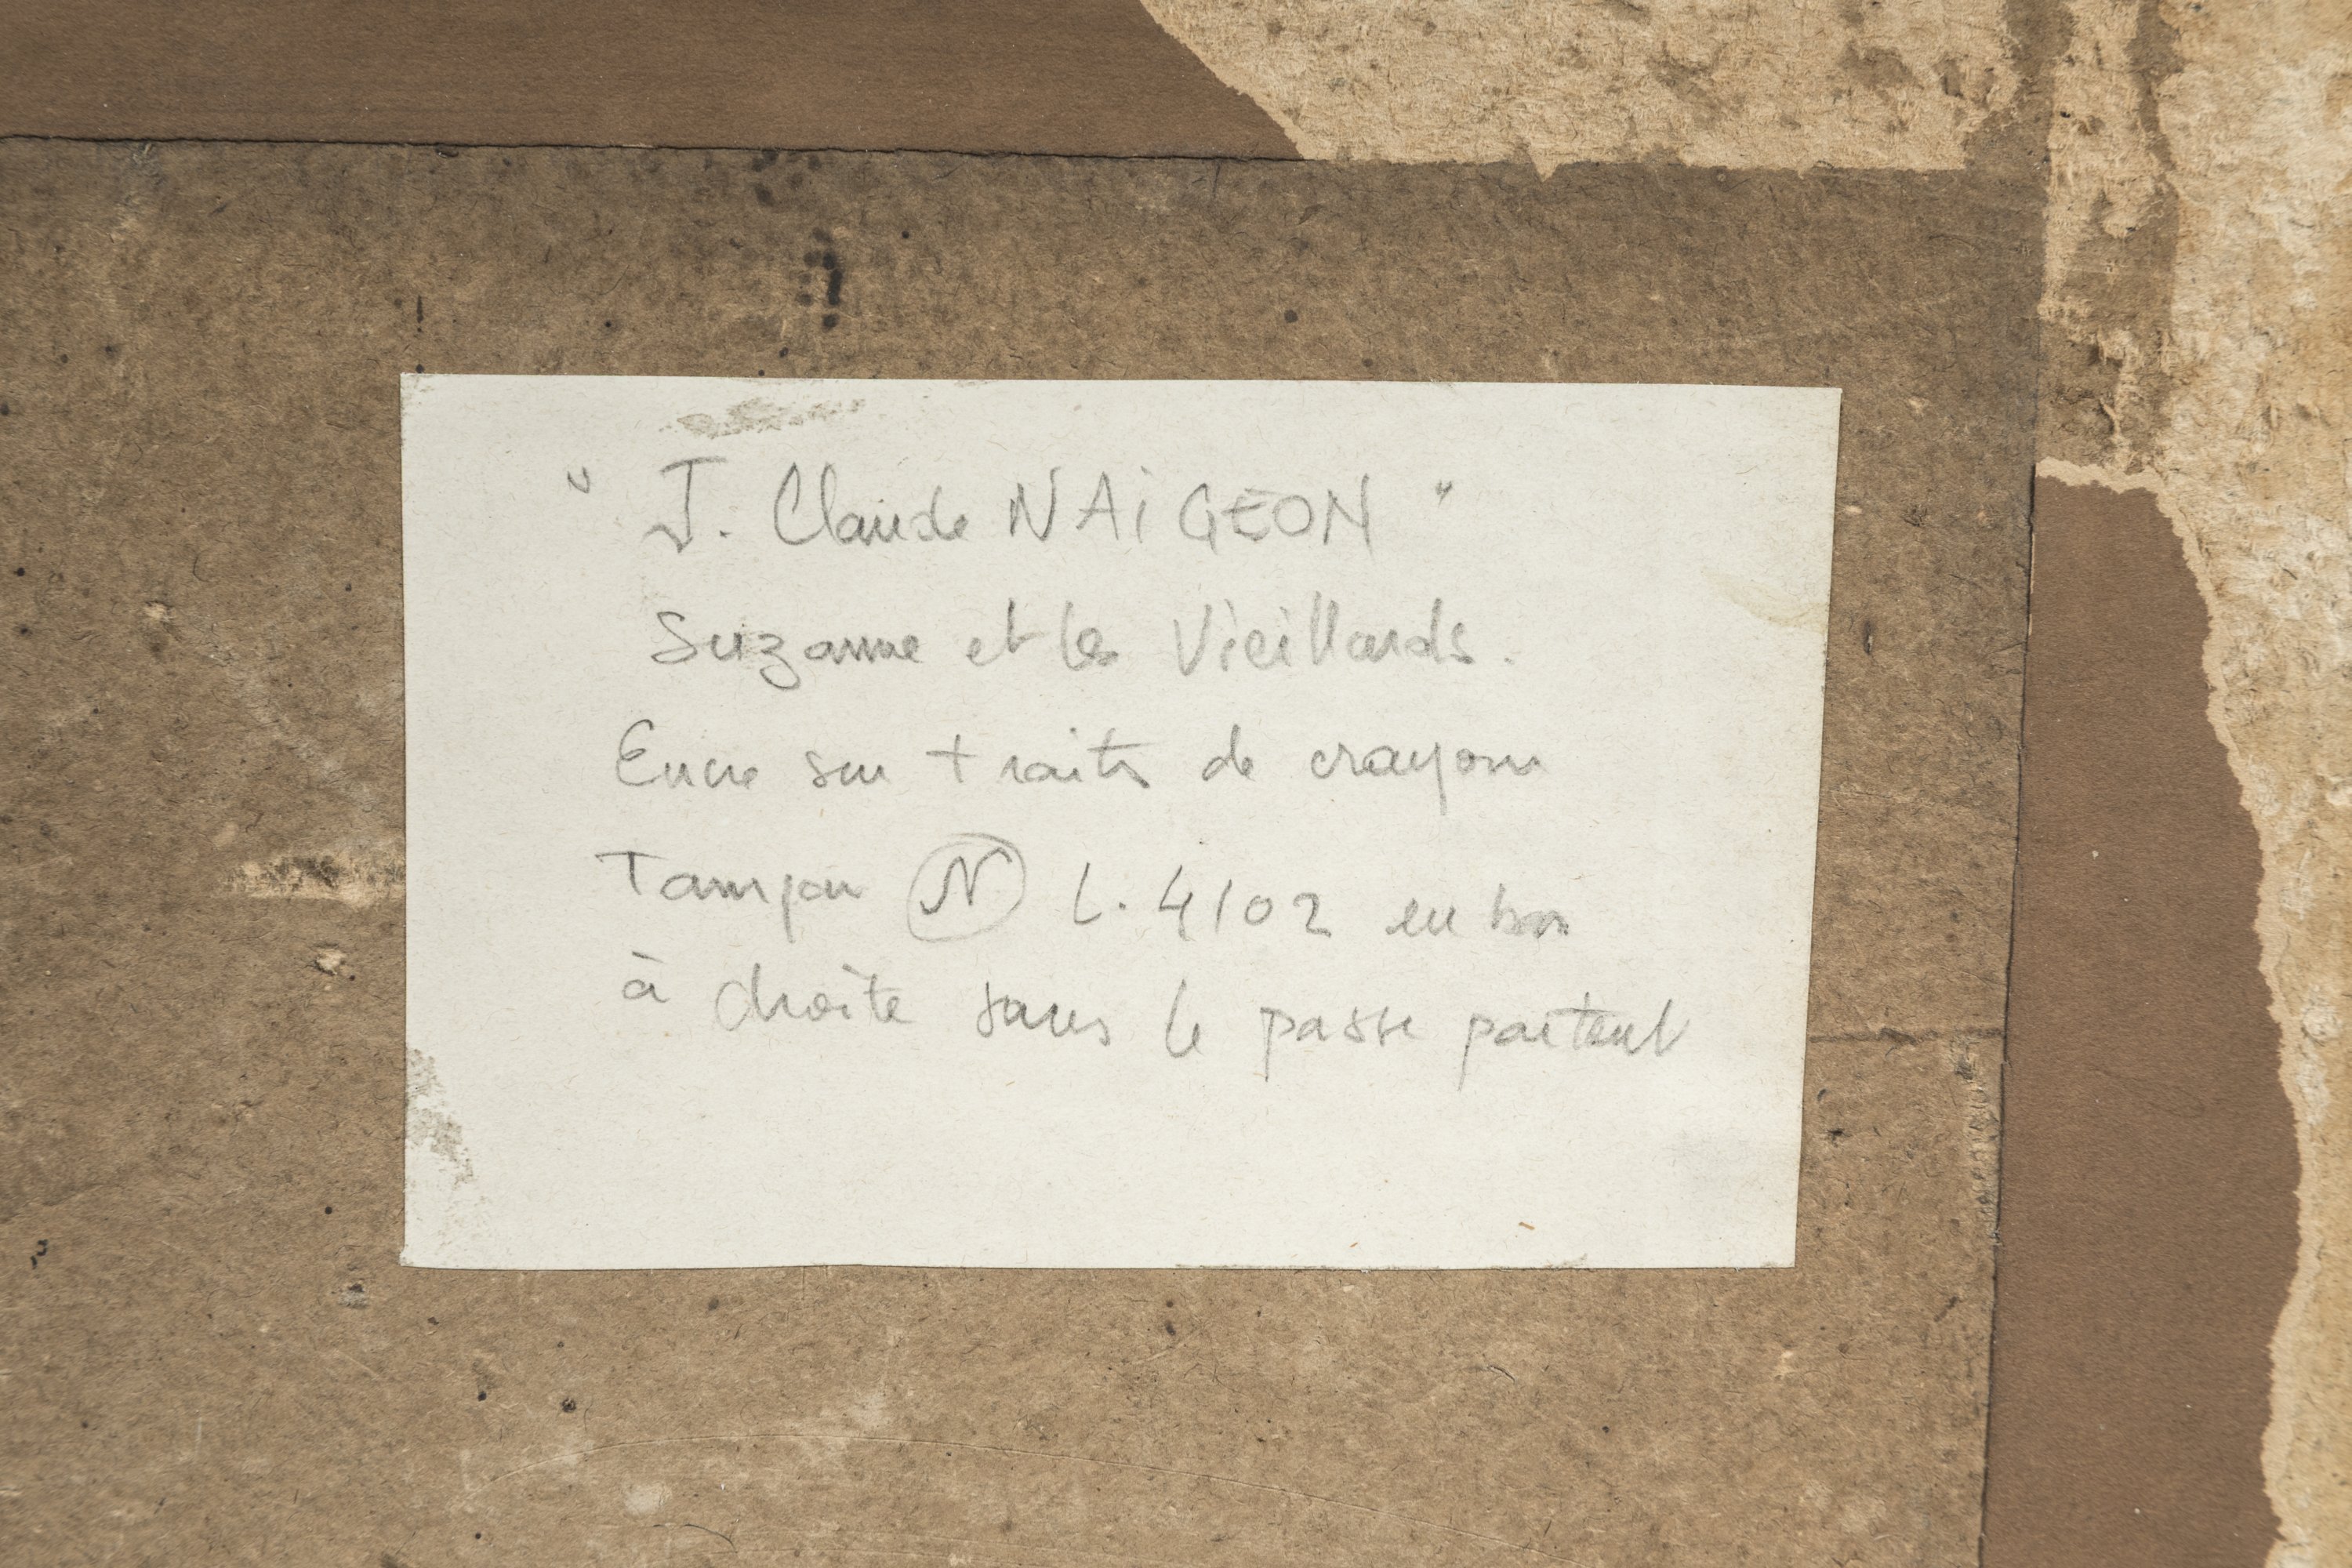 " J. Claude NAiGEON "
Suzanne et les Vieillards.
Encre sur traits de crayon
Tampon N L. 4102 en bas
à droite sous le passe partout